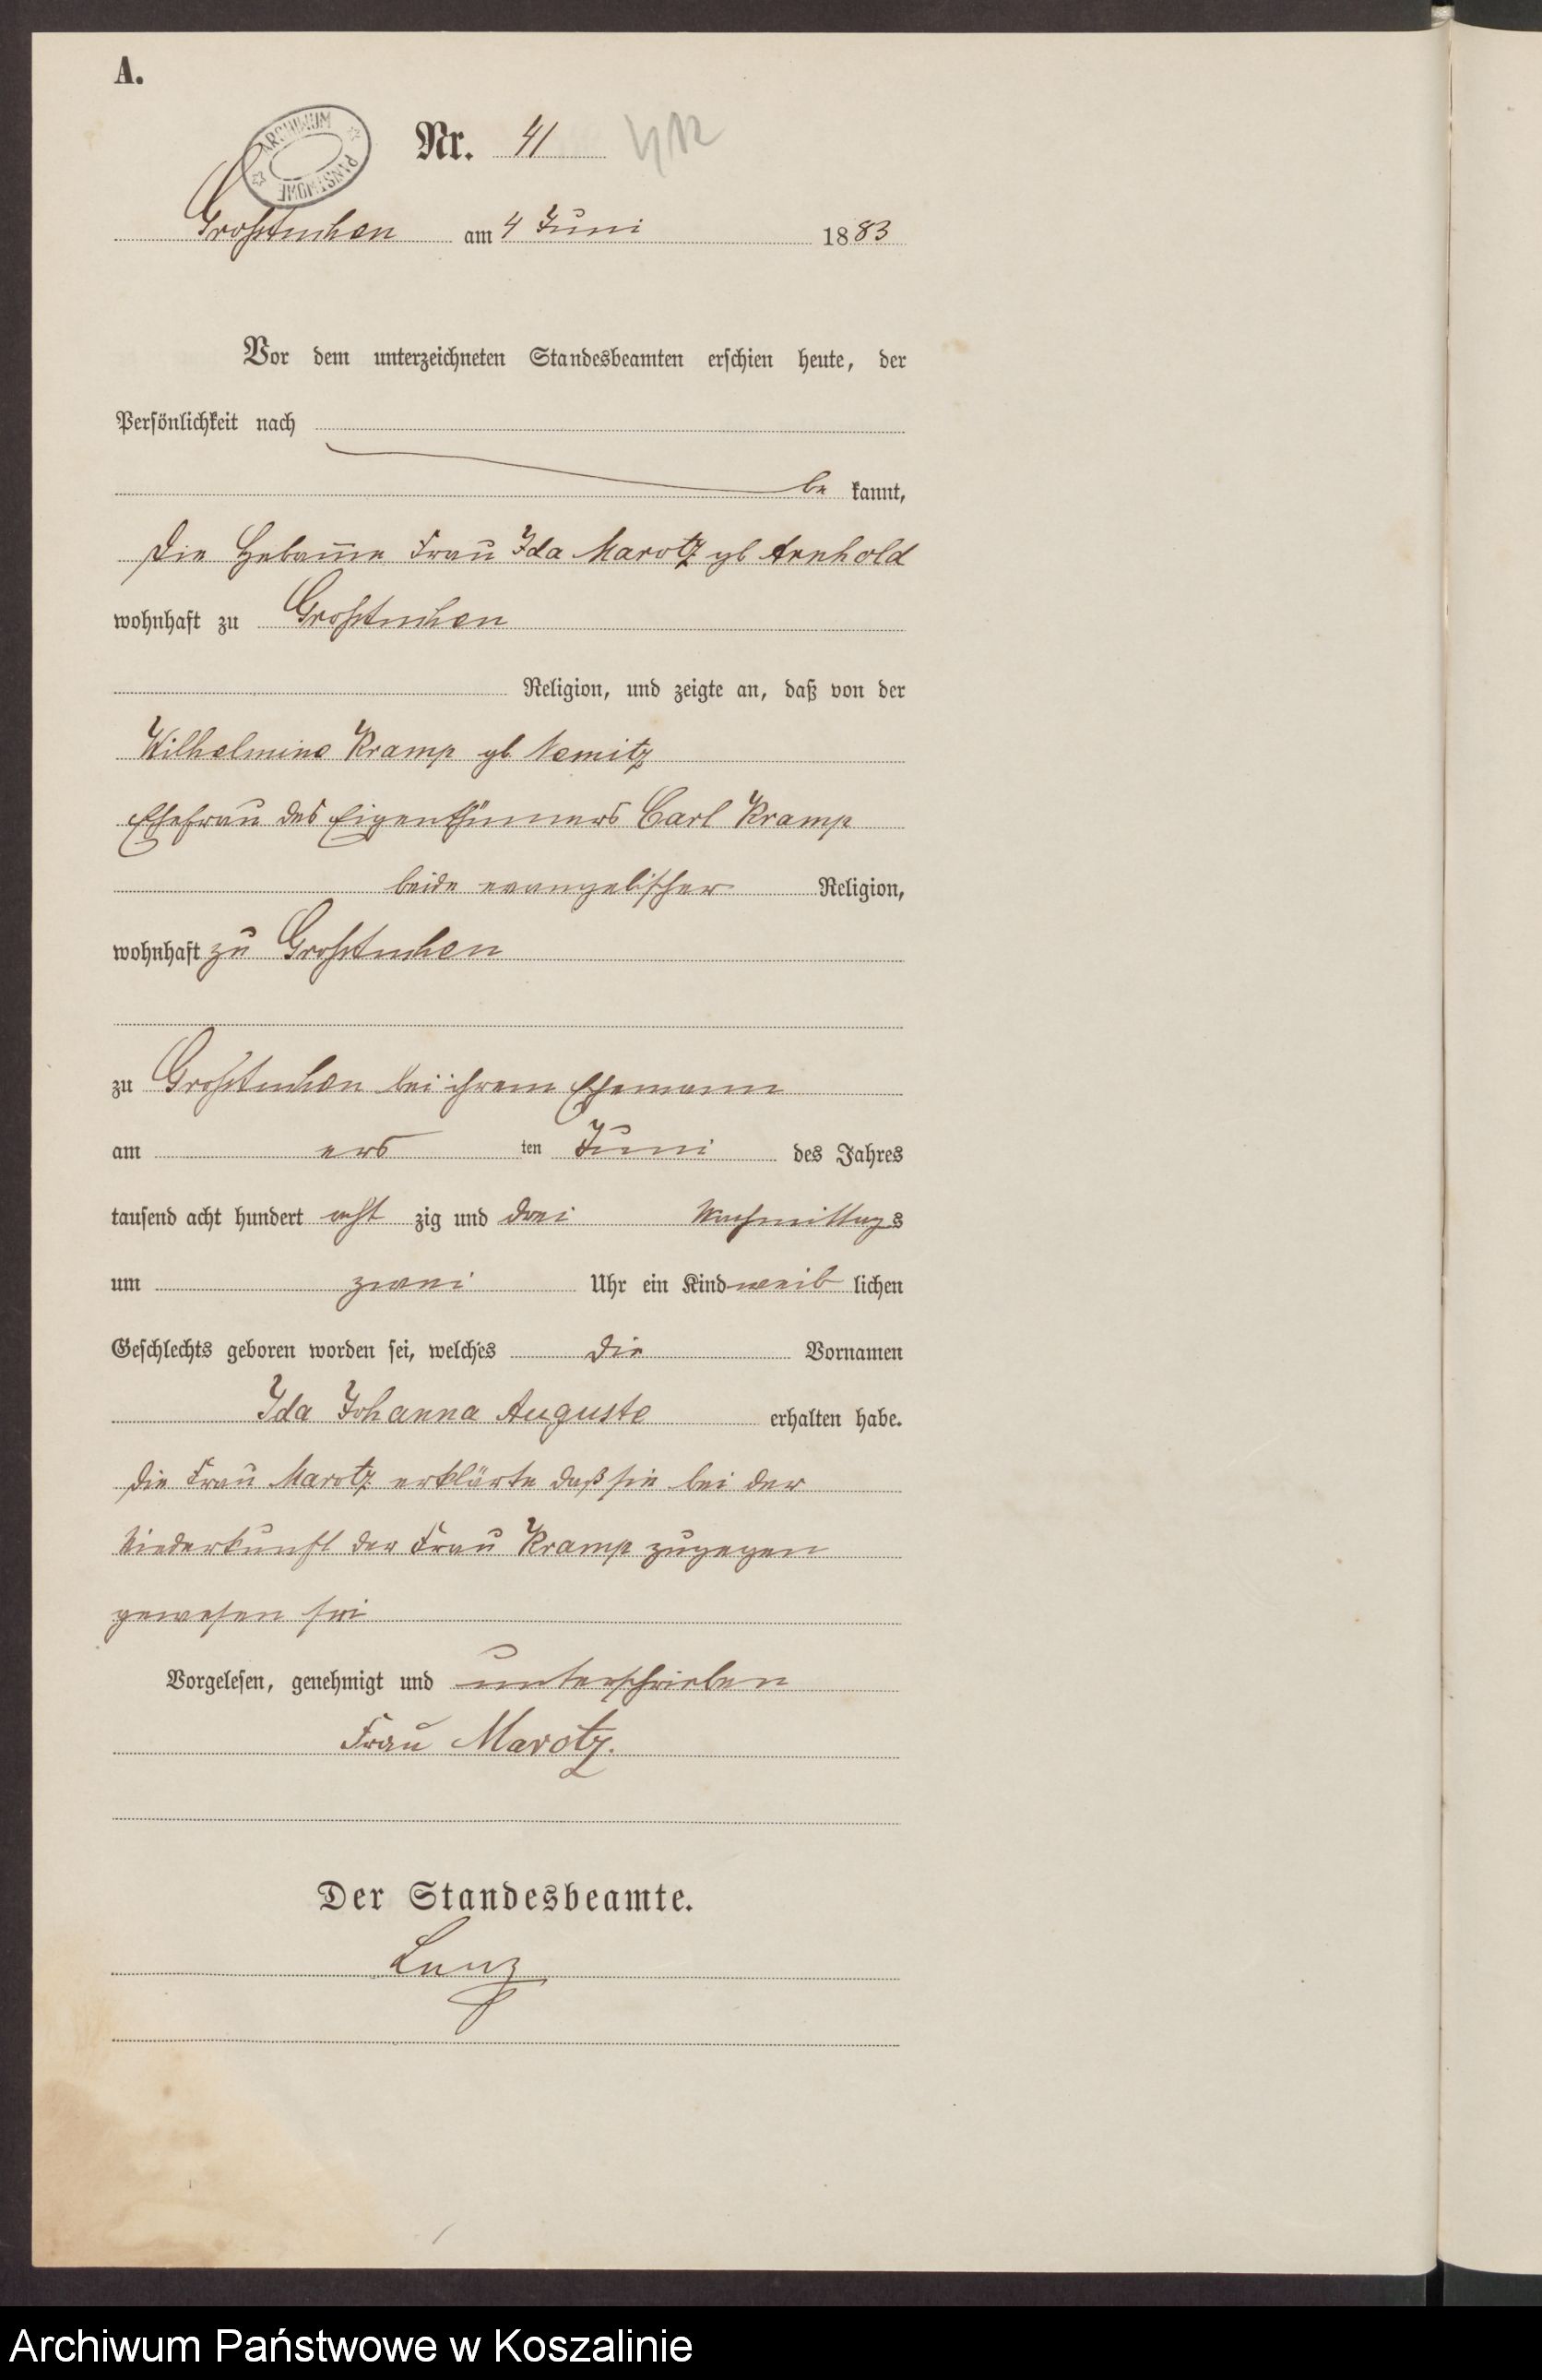 A.
ARCHIWUM PAŃSTWOWE
Nr. 41
Großtuchen am 4 Juni 1883
Vor dem unterzeichneten Standesbeamten erschien heute, der
Persönlichkeit nach
be kannt,
die Hebam̅e Frau Ida Marotz gb Arnhold
wohnhaft zu Großtuchen
Religion, und zeigte an, daß von der
Wilhelmine Kramp gb Nemitz
Ehefrau des Eigenthümers Carl Kramp
beide evangelischer Religion,
wohnhaft zu Großtuchen
zu Großtuchen bei ihrem Ehemann
am ers ten Juni des Jahres
tausend acht hundert acht zig und drei Nachmittags
um zwei Uhr ein Kind weib lichen
Geschlechts geboren worden sei, welches die Vornamen
Ida Johanna Auguste erhalten habe.
die Frau Marotz erklärte daß sie bei der
Niederkunft der Frau Kramp zugegen
gewesen sei
Vorgelesen, genehmigt und unterschrieben
Frau Marotz.
Der Standesbeamte.
Archiwum Państwowe w Koszalinie